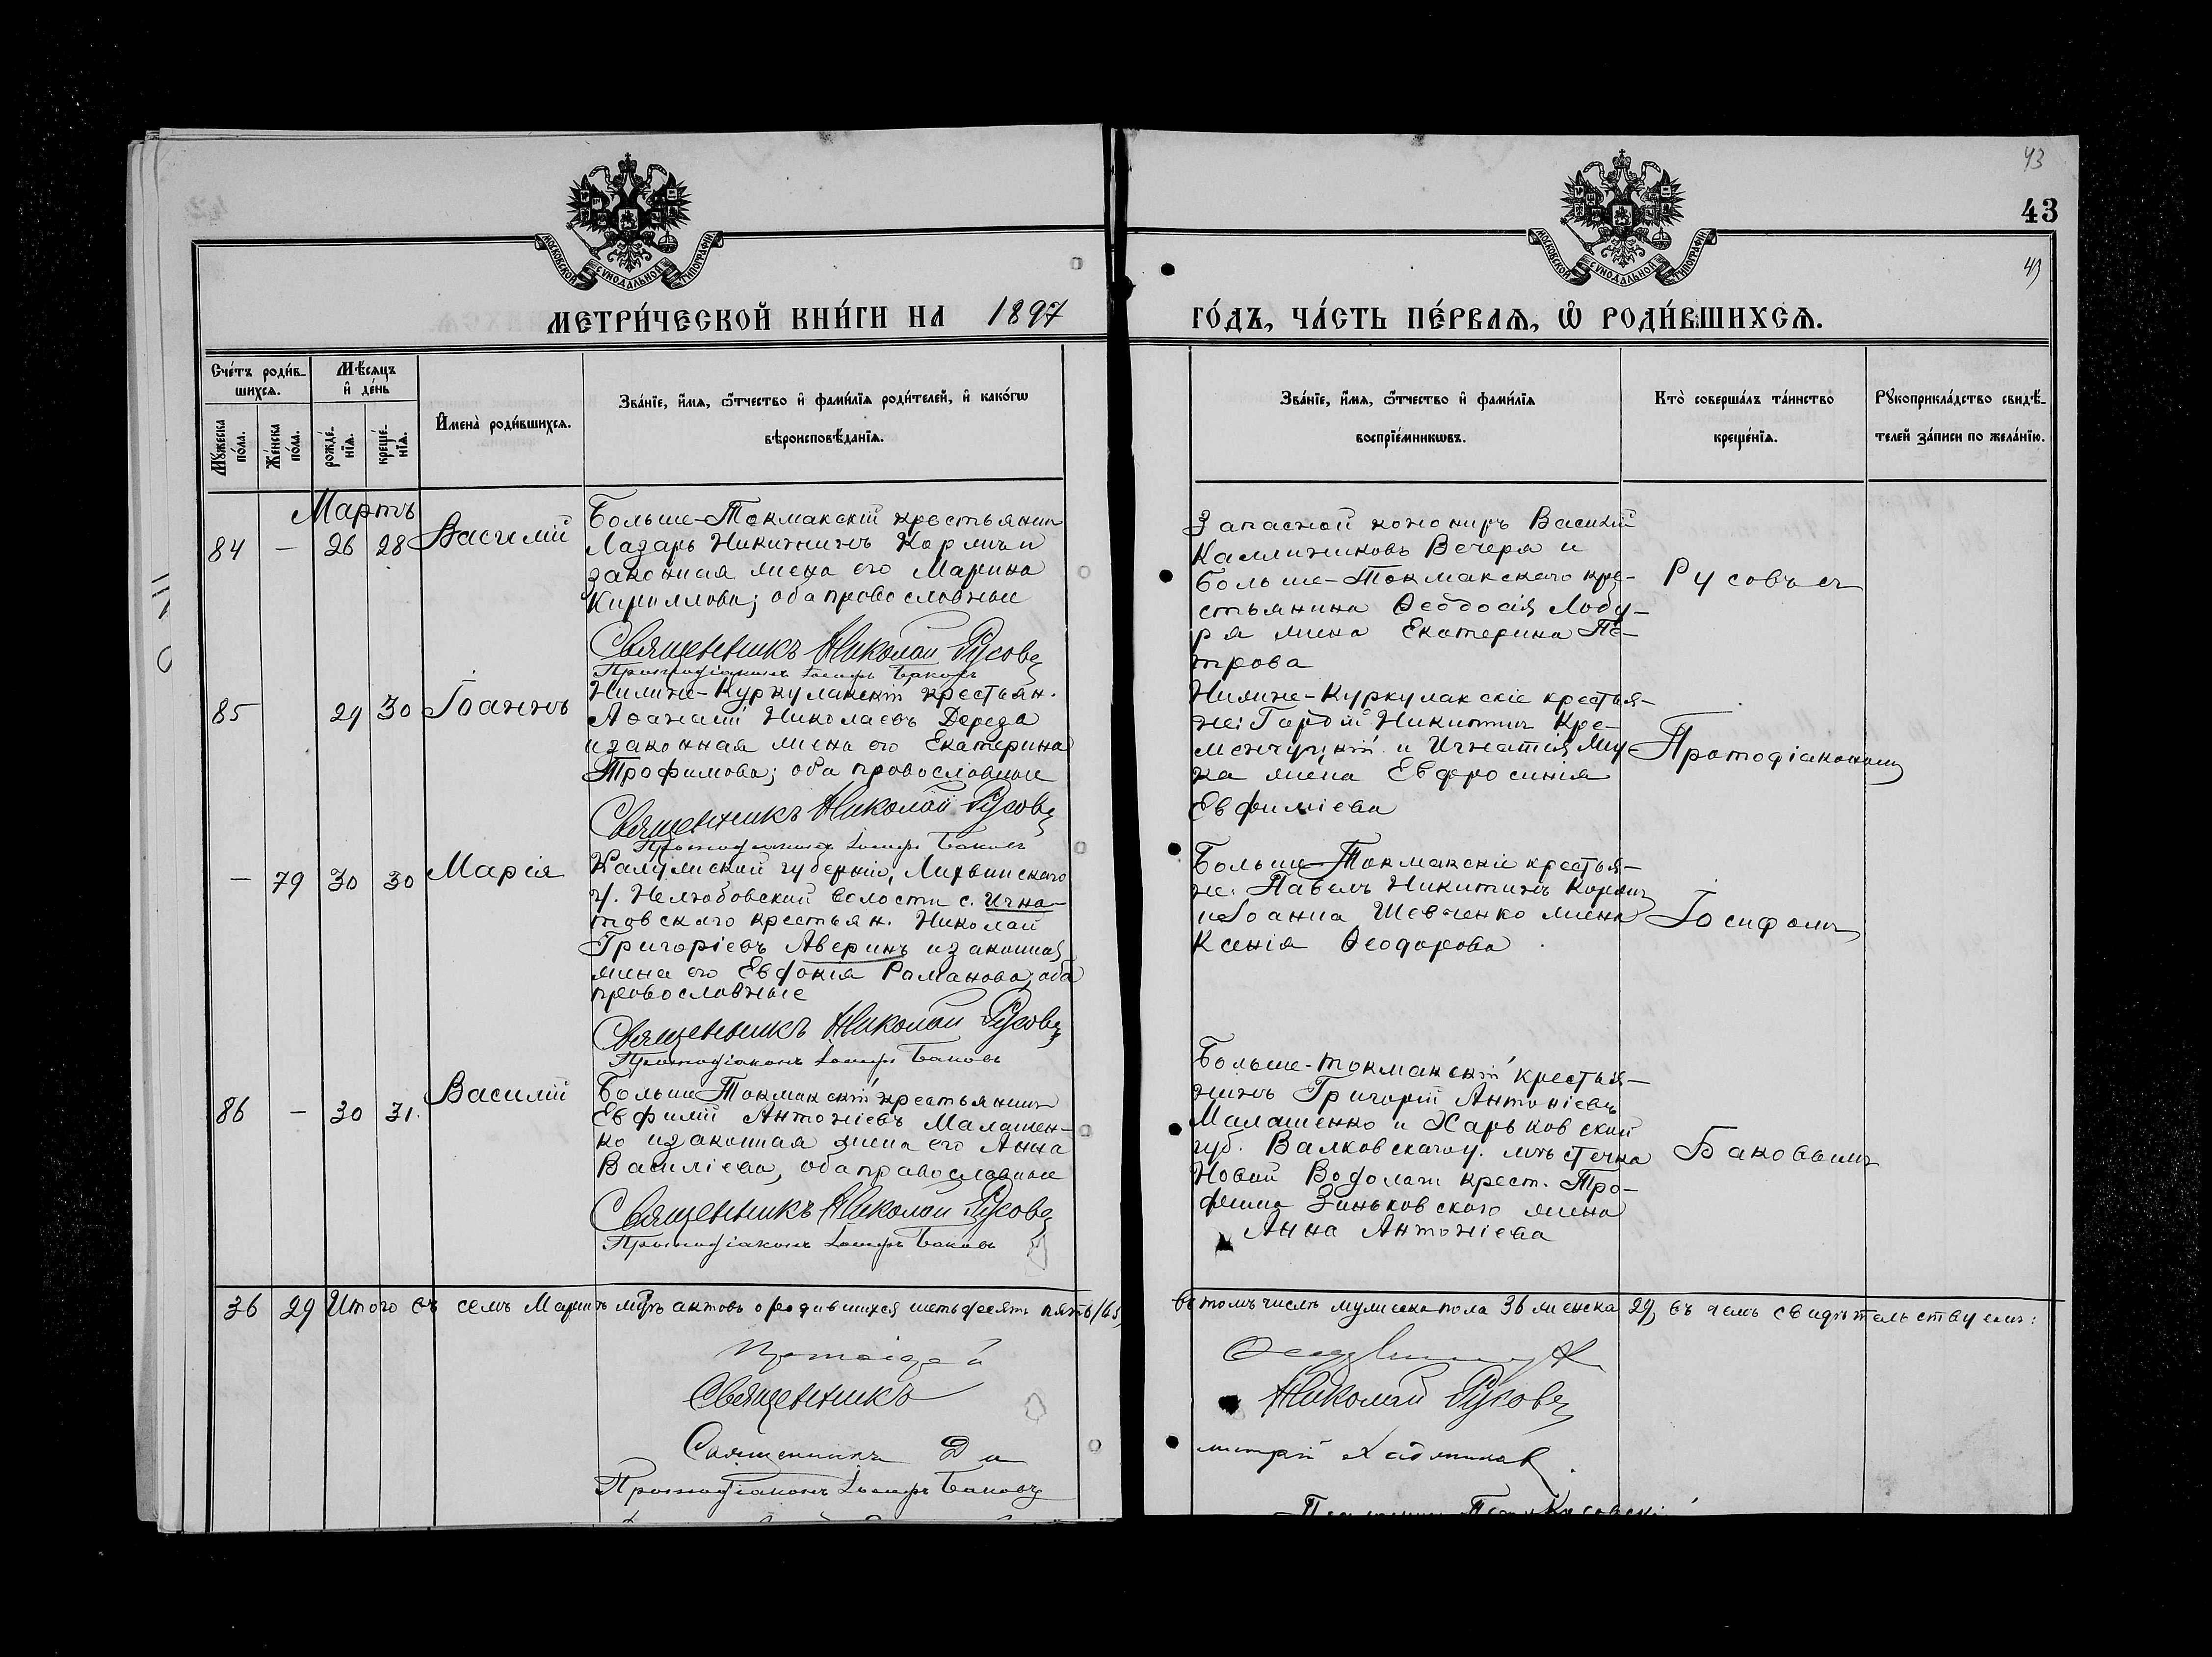 43
43
43
МОСКОВСКОЙ СѴНОДАЛЬНОЙ ТИПОГРАФІИ
МОСКОВСКОЙ СѴНОДАЛЬНОЙ ТИПОГРАФІИ
МЕТРИ́ЧЕСКОЙ КНИ́ГИ НА 1897
ГО́ДЪ, ЧА́СТЬ ПЕ́РВАЯ, Ѿ РОДИ́ВШИХСЯ.
Сче́тъ роди́в-
шихся.
Мꙋ́жеска по́ла.
Же́нска по́ла.
Мѣ́сяцъ
и҆ де́нь
рожде́-
нїя.
креще́-
нїя.
И҆мена̀ роди́вшихся.
Зва́нїе, и҆́мя, ѻ҆́тчество и҆ фами́лїя роди́телей, и҆ како́гѡ
вѣроисповѣ́данїя.
Зва́нїе, и҆́мя, ѻ҆́тчество и҆ фами́лїя
воспрїе́мникѡвъ.
Кто̀ соверша́лъ та́инство
креще́нїя.
Рꙋкоприкла́дство свидѣ́-
телей за́писи по жела́нїю.
Мартъ
84 — 26 28 Василій
Больше-Токмакскій крестьянин
Лазарь Никитинъ Кормич и
законная жена его Марина
Кириллова; оба православные
Священникъ Николай Русовъ
Протодіаконъ Іосифъ Баковъ
Запасной канониръ Василій
Каллиниковъ Вечеря и
Больше-Токмакского кре-
стьянина Ѳеодосія Лобу-
ря жена Екатерина Пе-
трова
Русовъ съ
85 29 30 Іоаннъ
Нижне-Куркулакскій крестьян.
Аѳанасій Николаевъ Дереза
и законная жена его Екатерина
Трофимова; оба православные
Священникъ Николай Русовъ
Протодіаконъ Іосифъ Баковъ
Нижне-Куркулакскіе крестья-
не: Гордій Никитин Кре-
менчуцкій и Игнатія Му-
ха жена Евфросинія
Евфиміева
Протодіакономъ
— 79 30 30 Марія
Калужской губерніи, Лихвинскаго
у. Нелюбовской волости с. Игна-
товскаго крестьян. Николай
Григоріевъ Аверинъ и законная
жена его Евдокія Романова; оба
православные
Священникъ Николай Русовъ
Протодіаконъ Іосифъ Баковъ
Больше-Токмакскіе крестья-
не: Павелъ Никитинъ
и Іоанна Шевченко жена
Ксенія Ѳеодорова
Іосифомъ
86 — 30 31. Василій
Больше-Токмакскій крестьянин
Евфимій Антоніевъ Малашен-
ко и законная жена его Анна
Василіева, оба православные
Священникъ Николай Русовъ
Протодіаконъ Іосифъ Баковъ
Больше-Токмакскій крестья-
нинъ Григорій Антоніевъ
Малашенко и Харьковской
губ. Валковскаго у. мѣстечка
Новой Водолаги крест. Тро-
фима Зиньковского жена
Анна Антоніева
Баковымъ
36 29 Итого въ семъ Мартѣ мцѣ актовъ о родившихся шестьдесятъ пять /65,
въ томъ числѣ мужеска пола 36 женска 29, въ чемъ свидѣтельствуемъ:
Протоіерей
Священникъ
Николай Русовъ
Священникъ Ди
митрій
Протодіаконъ Іосифъ Баковъ